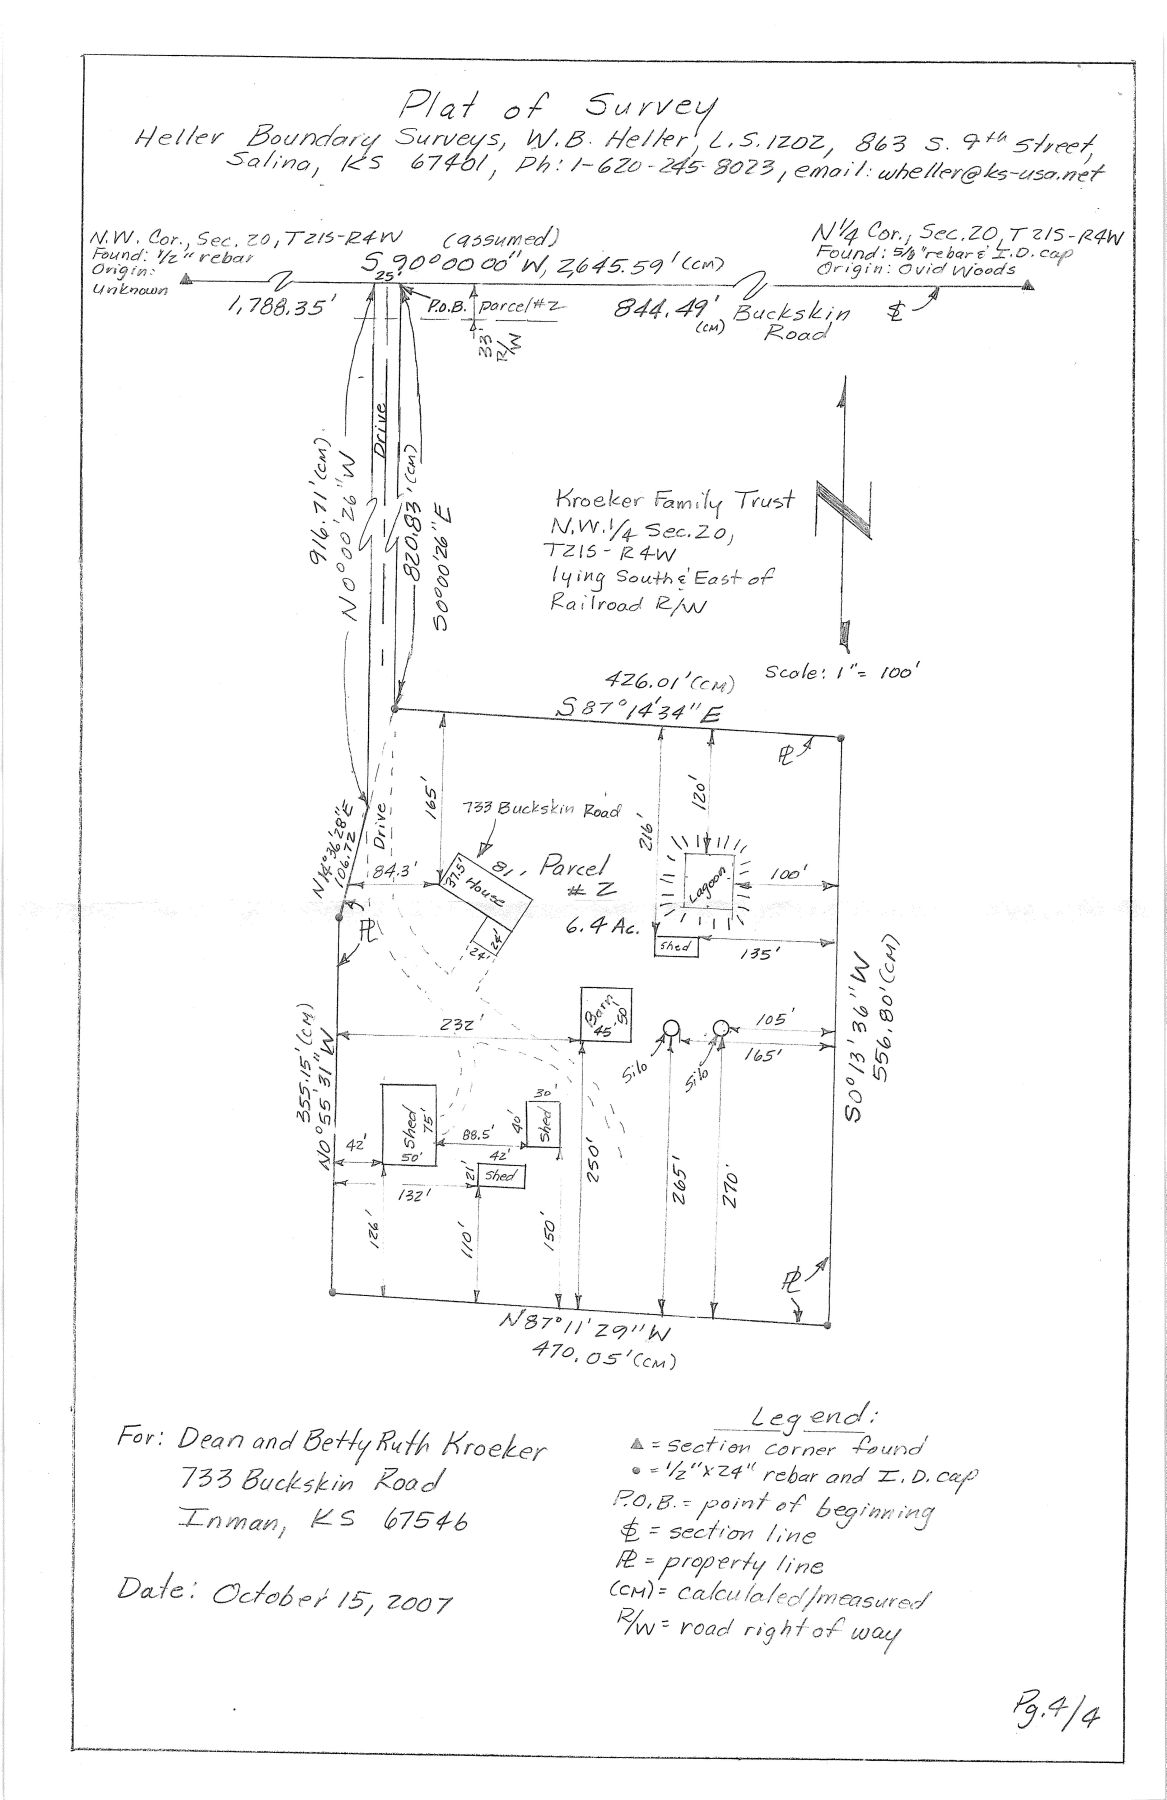 Plat of Survey
Heller Boundary Surveys, W.B. Heller, L.S. 1202, 863 S. 9th Street,
Salina, KS 67401, Ph: 1-620-245-8023, email: wheller@ks-usa.net
N.W. Cor., Sec. 20, T21S-R4W
Found: 1/2" rebar
Origin:
Unknown
(assumed)
S 90°00'00" W, 2,645.59' (CM)
N 1/4 Cor., Sec. 20, T21S-R4W
Found: 5/8" rebar & I.D. cap
Origin: Ovid Woods
25'
1,788.35'
P.O.B. Parcel #2
844.49'
(CM)
Buckskin
Road
33'
R/W
916.71' (CM)
N0°00'26"W
Drive
820.83' (CM)
S0°00'26"E
Kroeker Family Trust
N.W. 1/4 Sec. 20,
T21S-R4W
lying South & East of
Railroad R/W
Scale: 1" = 100'
426.01' (CM)
S87°14'34"E
PL
165'
733 Buckskin Road
216'
120'
N14°36'28"E
106.72'
Drive
84.3'
37.5'
House
81'
Parcel
#2
6.4 Ac.
Lagoon
100'
PL
24'
24'
Shed
135'
S0°13'36"W
556.80' (CM)
232'
Barn
45'
50'
Silo
Silo
105'
165'
355.15' (CM)
N0°55'31"W
Shed
75'
50'
42'
88.5'
30'
40'
Shed
42'
21'
Shed
132'
126'
110'
150'
250'
265'
270'
PL
N87°11'29"W
470.05' (CM)
For: Dean and Betty Ruth Kroeker
733 Buckskin Road
Inman, KS 67546
Date: October 15, 2007
Legend:
▲ = section corner found
● = 1/2" x 24" rebar and I.D. cap
P.O.B. = point of beginning
℄ = section line
PL = property line
(CM) = calculated/measured
R/W = road right of way
Pg. 4/4